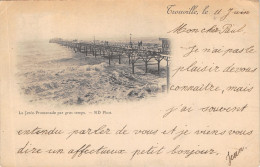 Trouville, le 11 Juin
Mon cher Paul,
Je n'ai pas le
plaisir de vous
connaître, mais
j'ai souvent
entendu parler de vous et je viens vous
dire un affectueux petit bonjour.
Jean
La Jetée-Promenade par gros temps. — ND Phot.